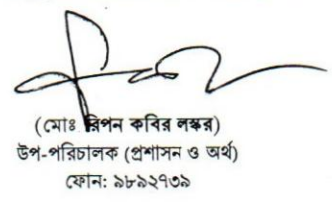 (মোঃ রিপন কবির লস্কর)
উপ-পরিচালক (প্রশাসন ও অর্থ)
ফোন: ৯৮৯২৭৩৯